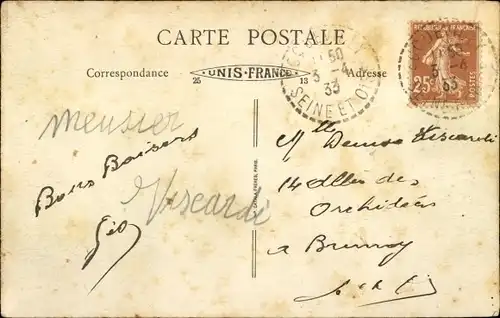 CARTE POSTALE
Correspondance
UNIS-FRANCE
25
13
Adresse
50
3-4
33
SEINE ET O
RÉPUBLIQUE FRANÇAISE
25c
POSTES
Meusier
Bons Baisers
Géo
Viscardi
Mlle Denise Viscardi
14 Allée des
Orchidées
a Brunoy
S et O